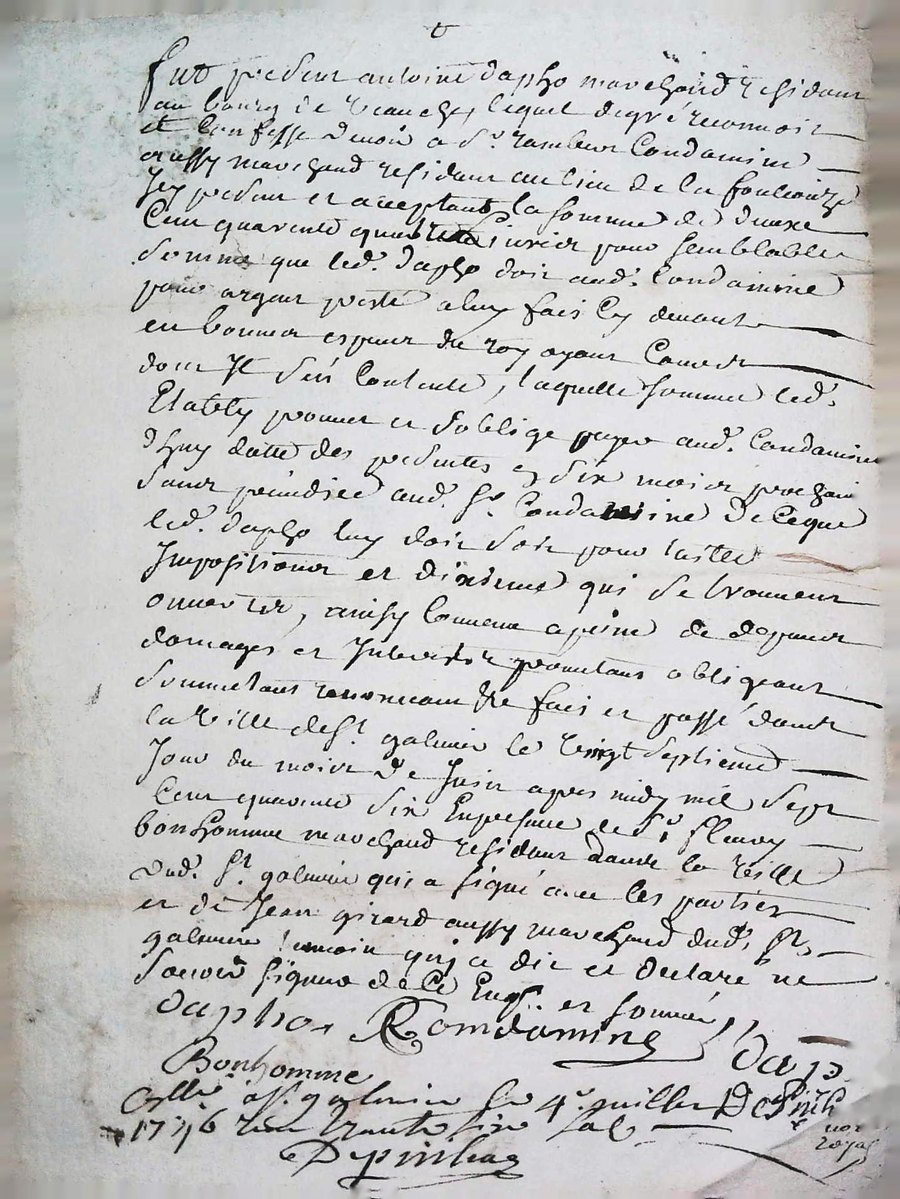 fut présent antoine dapho marchand residant
au bourg de veauche, lequel de gré reconnoit
et confesse devoir a Sr. rambert Condamine
aussy marchand residant au lieu de la fouliouze
Icy présent et acceptant la somme de deuxe
Cent quarente quattre livres pour semblable
Somme que led. dapho doit aud. Condamine
pour argent presté a luy fait cy devant
en bonnes espece du roy ayant Cours
dont Il s'en contente, laquelle somme led.
Etably promet et s'oblige payer aud. Condamine
d'huy datte des presentes en six mois prochain
Sans préiudice aud. Sr. Condamine de ce que
led. dapho luy doit soit pour taille
Impositions et dixieme qui se trouveront
ainsy comme a peine de depens
domages et Interest promettant obligeant
Soumettant renonceant &c fait et passé dans
la ville de St. galmier le vingt septieme
Jour du mois de Juin apres midy mil sept
Cent quarente six En presence de Sr. fleury
bonhomme marchand residant dans la ville
dud. St. galmier qui a signé avec les parties
et de Jean girard aussy marchand dud. St.
galmier temoin qui a dit et declaré ne
Scavoir signer de ce Enq. et sommé
daphos RCondamine
Bonhomme
Collé. a St. galmier le 4e. juillet
1746 Reçu trente six sols
not
royal